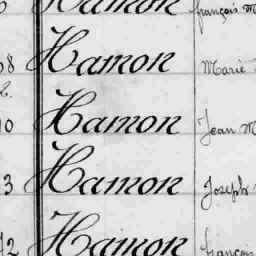 Hamon françois M
8 Hamon Marie
10 Hamon Jean M
3 Hamon Joseph
12 Hamon françois